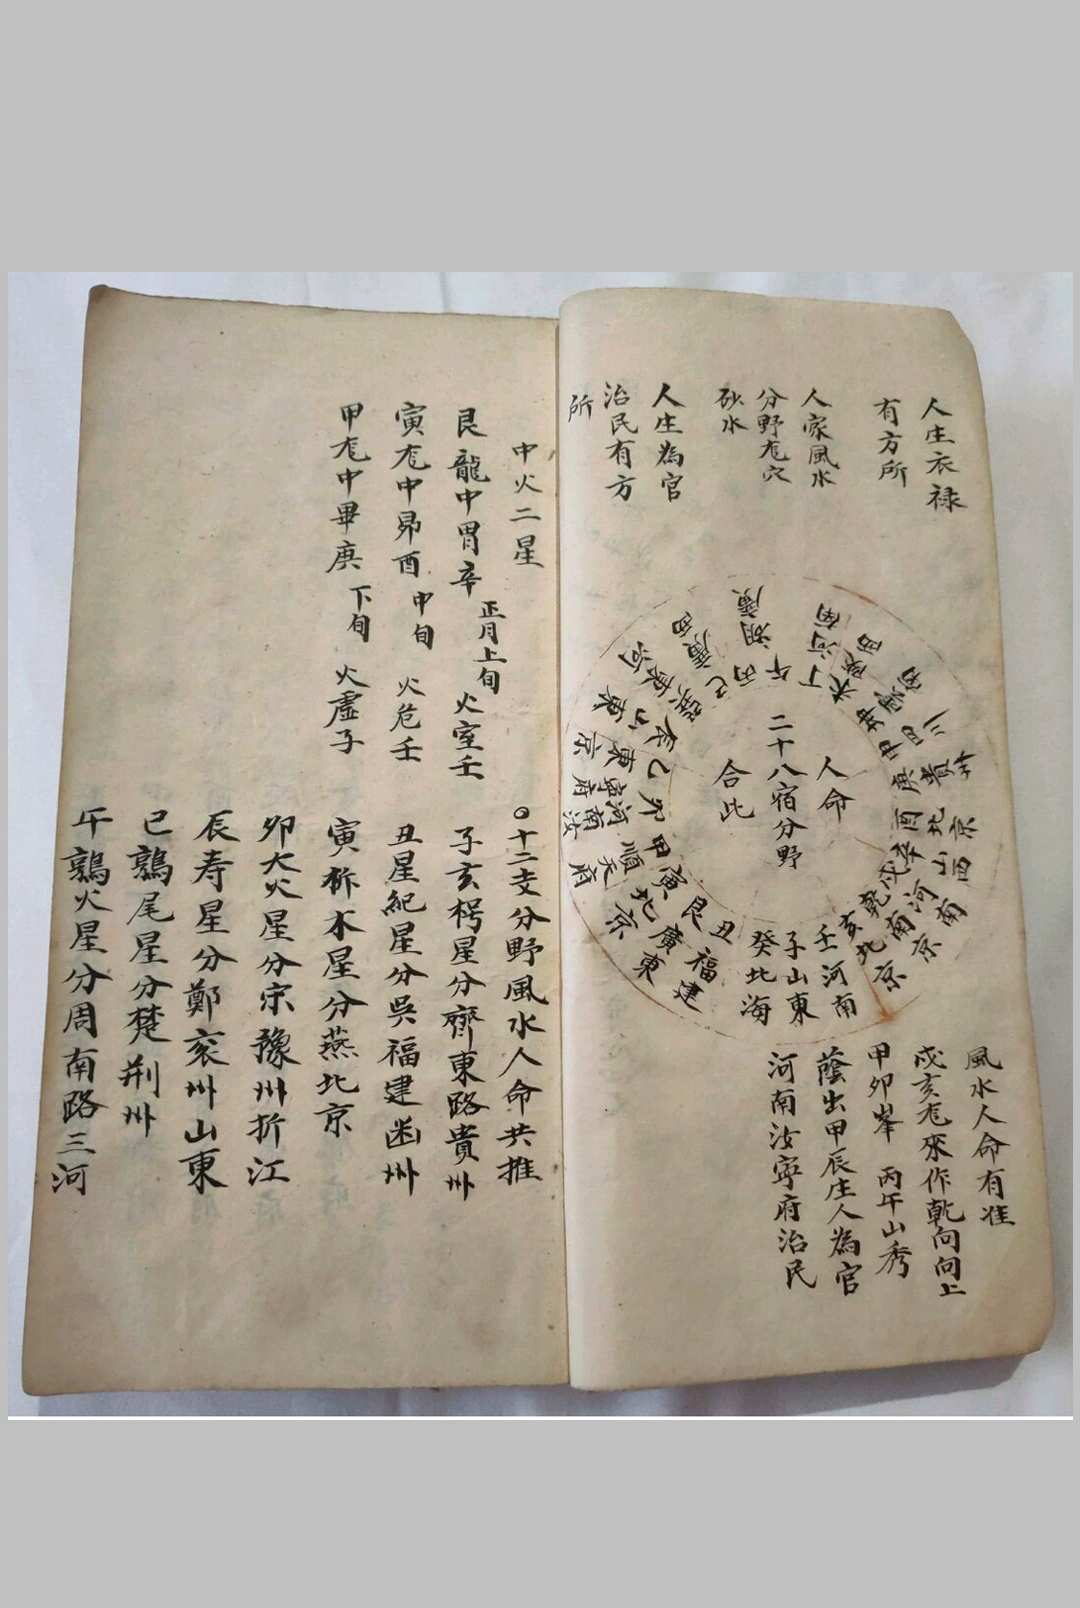 人生衣禄
有方所
人家風水
分野龙穴
砂水
人生為官
治民有方
所
人命
二十八宿分野
合此
壬河南
子山東
癸北海
丑福建
艮廣東
寅北京
甲順天府
卯河南汝
寧府
乙東京
辰山東
丙
午湖廣
丁河南
未陕西
坤雲南
申四川
庚貴州
酉北京
辛山西
乾南京
亥北京
風水人命有准
戍亥龙來作乾向向上
甲卯峯 丙午山秀
蔭出甲辰生人為官
河南汝寧府治民
中火二星
艮龍中胃辛 正月上旬 火室壬
寅龙中昴酉 中旬 火危壬
甲龙中畢庚 下旬 火虛子
○十二支分野風水人命共推
子亥枵星分齊東路貴州
丑星紀星分吳福建函州
寅柝木星分燕北京
卯大火星分宗豫州折江
辰寿星分鄭兖州山東
已鶉尾星分楚荆州
午鶉火星分周南路三河